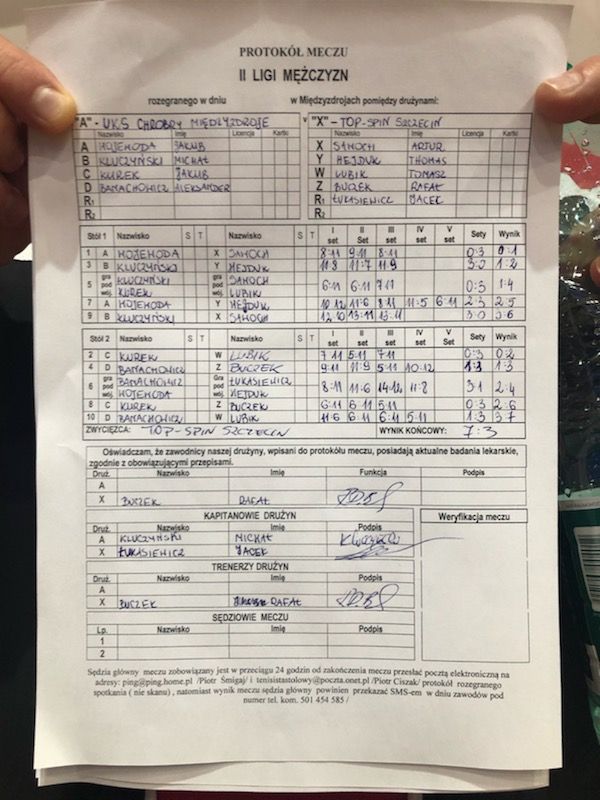 PROTOKÓŁ MECZU
II LIGI MĘŻCZYZN
rozegranego w dniu w Międzyzdrojach pomiędzy drużynami:
"A" - UKS CHROBRY MIĘDZYZDROJE v "X" - TOP-SPIN SZCZECIN
Nazwisko Imię Licencja Kartki Nazwisko Imię Licencja Kartki
A WOJEWODA JAKUB X SAMOCH ARTUR
B KLUCZYŃSKI MICHAŁ Y HEJDUK THOMAS
C KUREK JAKUB W LUBIK TOMASZ
D BANACHOWICZ ALEKSANDER Z BUCZEK RAFAŁ
R1 R1 ŁUKASIEWICZ JACEK
R2 R2
Stół 1 Nazwisko S T Nazwisko S T I set II Set III set IV set V Set Sety Wynik
1 A WOJEWODA X SAMOCH 8:11 9:11 8:11 0:3 0:1
3 B KLUCZYŃSKI Y HEJDUK 11:8 11:7 11:9 3:0 1:2
5 gra pod wój. KLUCZYŃSKI KUREK gra pod wój. SAMOCH LUBIK 6:11 6:11 7:11 0:3 1:4
7 A WOJEWODA Y HEJDUK 10:12 11:6 8:11 11:5 6:11 2:3 2:5
9 B KLUCZYŃSKI X SAMOCH 12:10 13:11 13:11 3:0 3:6
Stół 2 Nazwisko S T Nazwisko S T I set II set III set IV set V set Sety Wynik
2 C KUREK W LUBIK 7:11 5:11 7:11 0:3 0:2
4 D BANACHOWICZ Z BUCZEK 9:11 11:9 5:11 10:12 1:3 1:3
6 gra pod wój. BANACHOWICZ WOJEWODA Gra pod wój. ŁUKASIEWICZ HEJDUK 8:11 11:6 14:12 11:8 3:1 2:4
8 C KUREK Z BUCZEK 6:11 6:11 5:11 0:3 2:6
10 D BANACHOWICZ W LUBIK 11:6 6:11 6:11 5:11 1:3 3:7
ZWYCIĘZCA: TOP-SPIN SZCZECIN WYNIK KOŃCOWY: 7:3
Oświadczam, że zawodnicy naszej drużyny, wpisani do protokołu meczu, posiadają aktualne badania lekarskie,
zgodnie z obowiązującymi przepisami.
Druż. Nazwisko Imię Funkcja Podpis
A
X BUCZEK RAFAŁ
KAPITANOWIE DRUŻYN Weryfikacja meczu
Druż. Nazwisko Imię Podpis
A KLUCZYŃSKI MICHAŁ
X ŁUKASIEWICZ JACEK
TRENERZY DRUŻYN
Druż. Nazwisko Imię Podpis
A
X BUCZEK RAFAŁ
SĘDZIOWIE MECZU
Lp. Nazwisko Imię Podpis
1
2
Sędzia główny meczu zobowiązany jest w przeciągu 24 godzin od zakończenia meczu przesłać pocztą elektroniczną na
adresy: ping@ping.home.pl /Piotr Śmigaj/ i tenisistastolowy@poczta.onet.pl /Piotr Ciszak/ protokół rozegranego
spotkania ( nie skanu) , natomiast wynik meczu sędzia główny powinien przekazać SMS-em w dniu zawodów pod
numer tel. kom. 501 454 585 /